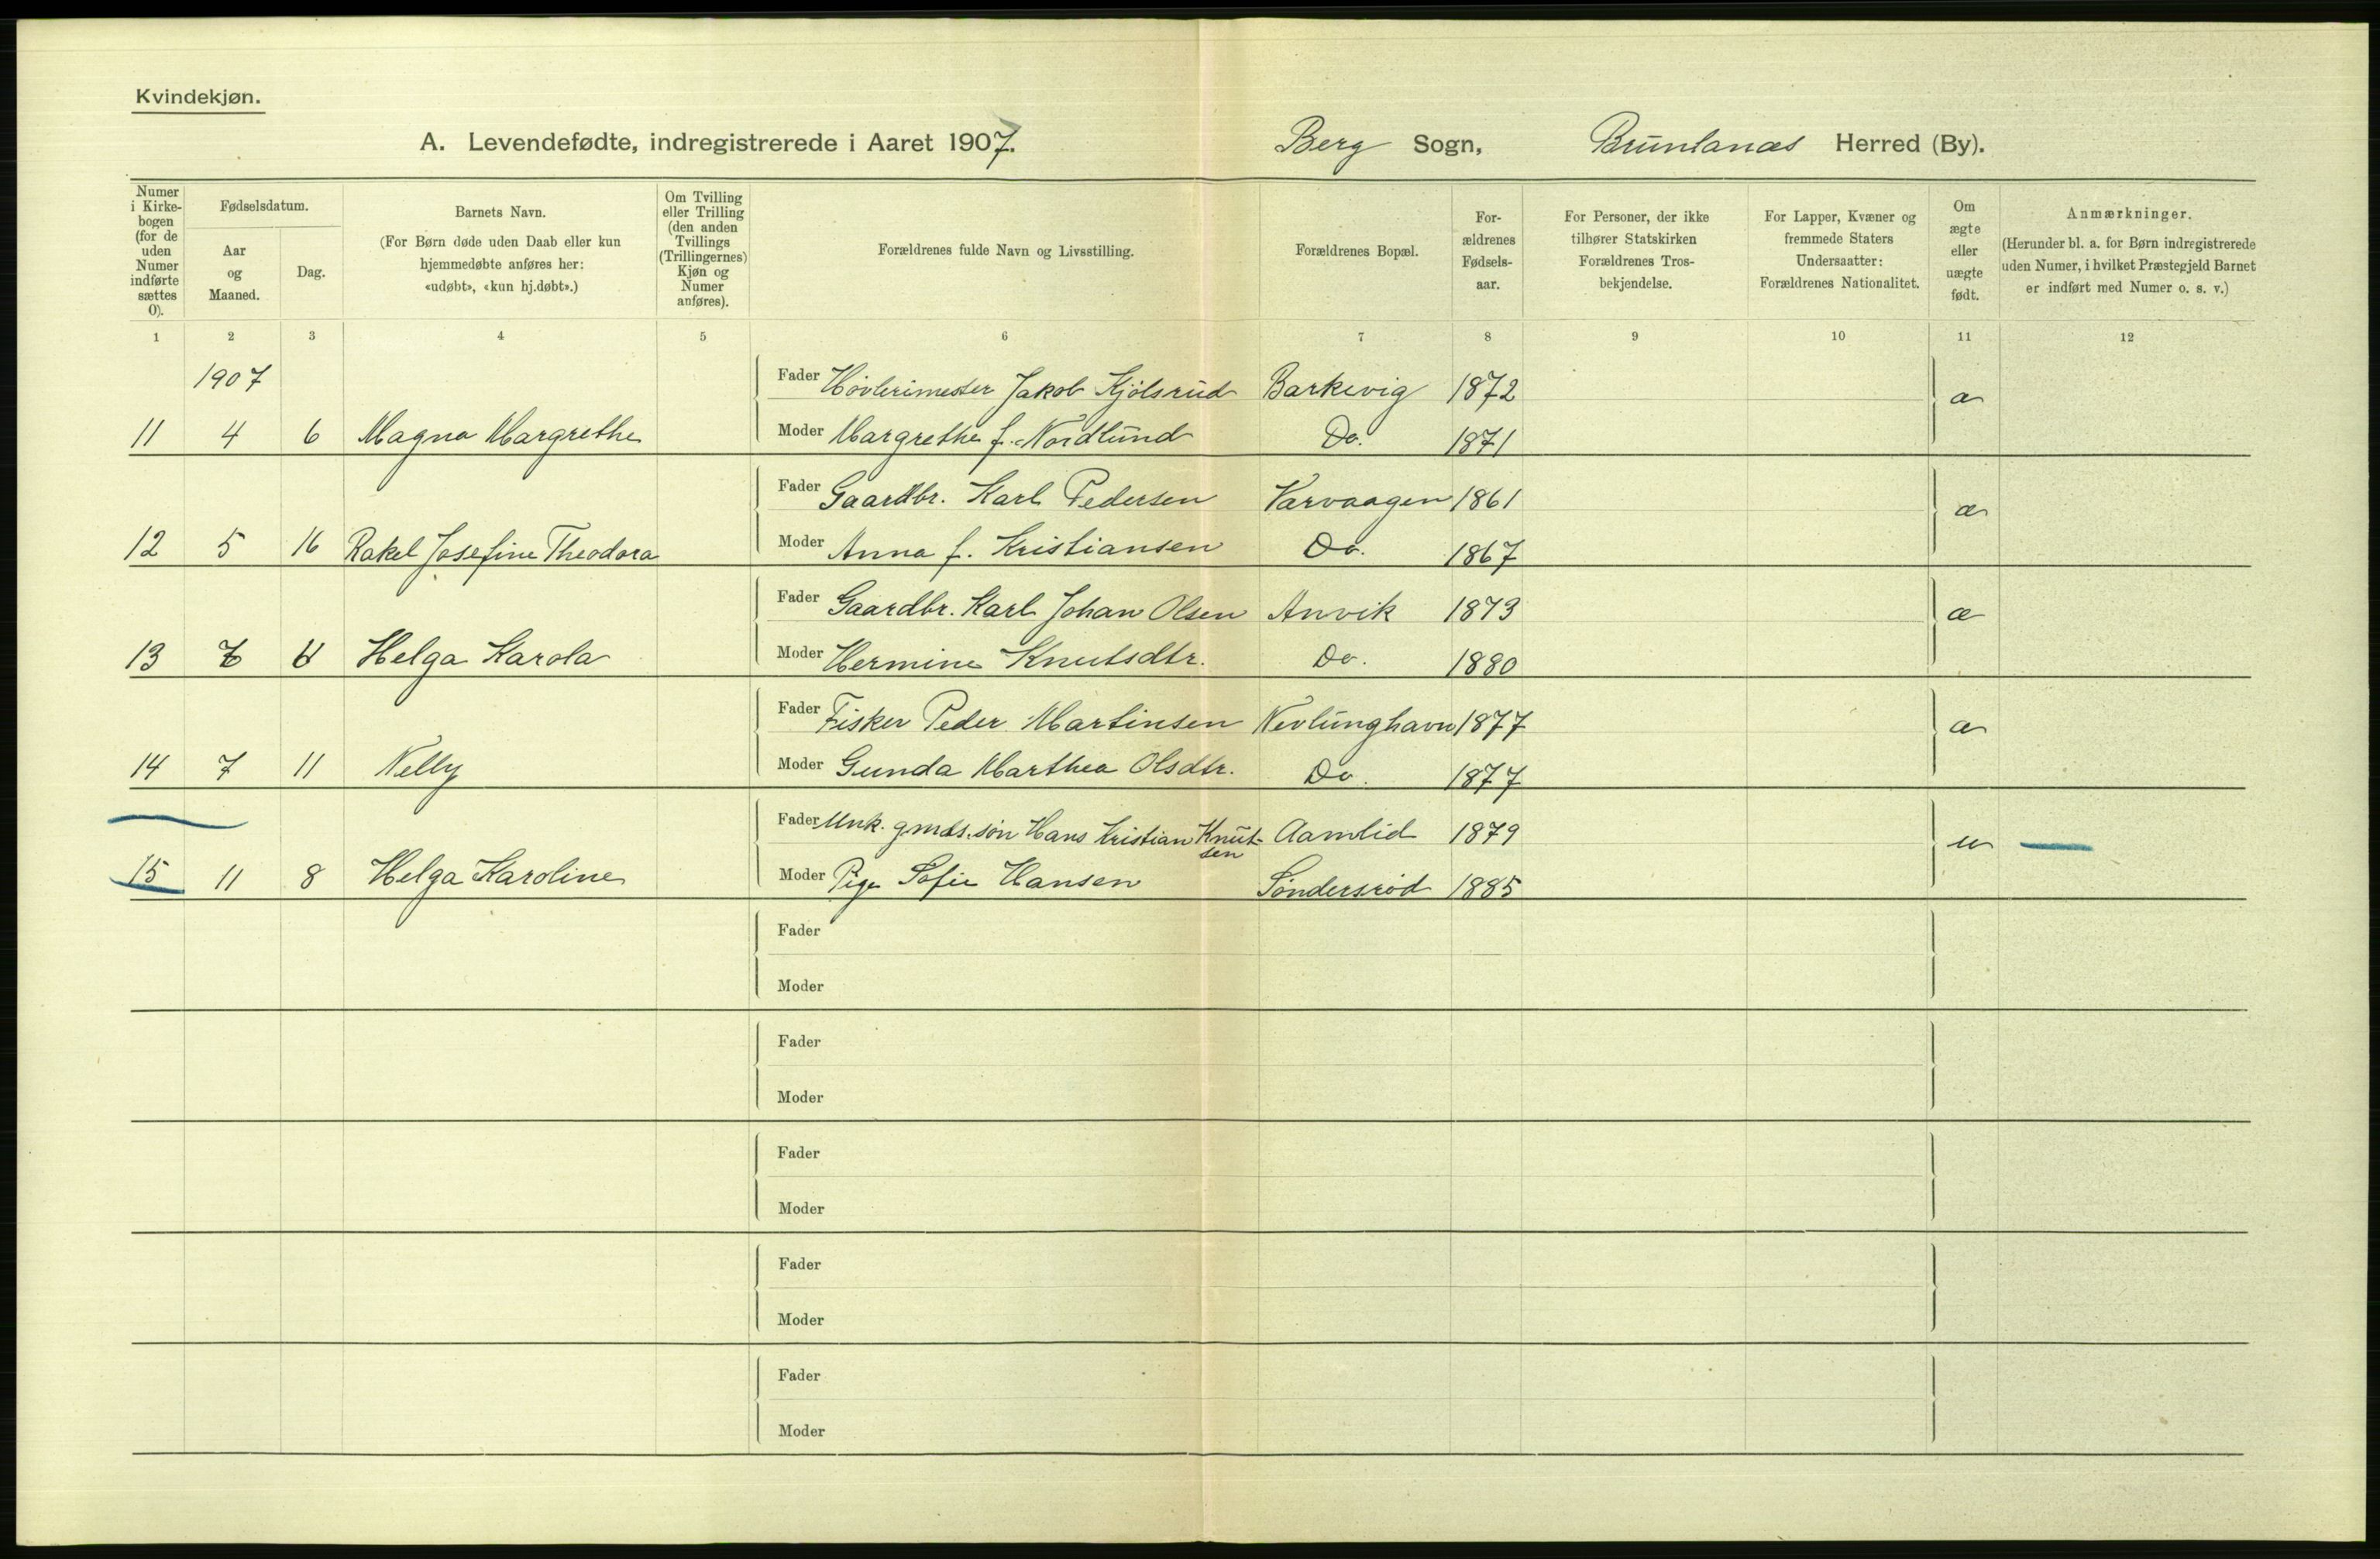 Kvindekjøn.
A. Levendefødte, indregistrerede i Aaret 1907. Berg Sogn, Brunlanæs Herred (By).
Numer i Kirke- bogen (for de uden Numer indførte sættes 0).
Fødselsdatum.
Aar og Maaned.
Dag.
Barnets Navn.
(For Børn døde uden Daab eller kun
hjemmedøbte anføres her:
«udøbt», «kun hj.døbt».)
Om Tvilling eller Trilling (den anden Tvillings (Trillingernes) Kjøn og Numer anføres).
Forældrenes fulde Navn og Livsstilling.
Forældrenes Bopæl.
For- ældrenes Fødsels- aar.
For Personer, der ikke tilhører Statskirken Forældrenes Tros- bekjendelse.
For Lapper, Kvæner og fremmede Staters Undersaatter: Forældrenes Nationalitet.
Om ægte eller uægte født.
Anmærkninger.
(Herunder bl. a. for Børn indregistrerede
uden Numer, i hvilket Præstegjeld Barnet
er indført med Numer o. s. v.)
1 2 3 4 5 6 7 8 9 10 11 12
1907
Fader Høvlerimester Jakob Kjølsrud Barkevig 1872 æ
11 4 6 Magna Margrethe Moder Margrethe f. Nordlund Do. 1871
Fader Gaardbr. Karl Pedersen Varvaagen 1861 æ
12 5 16 Rakel Josefine Theodora Moder Anna f. Kristiansen Do. 1867
Fader Gaardbr. Karl Johan Olsen Anvik 1873 æ
13 7 Helga Karola Moder Hermine Knutsdtr. Do. 1880
Fader Fisker Peder Martinsen Nevlunghavn 1877 æ
14 7 11 Nelly Moder Gunda Marthea Olsdtr. Do. 1877
Fader Unk. gmds. søn Hans Kristian Knut- Aamlid 1879 u
sen
15 11 8 Helga Karoline Moder Pige Sofie Hansen Søndersrød 1885
Fader
Moder
Fader
Moder
Fader
Moder
Fader
Moder
Fader
Moder